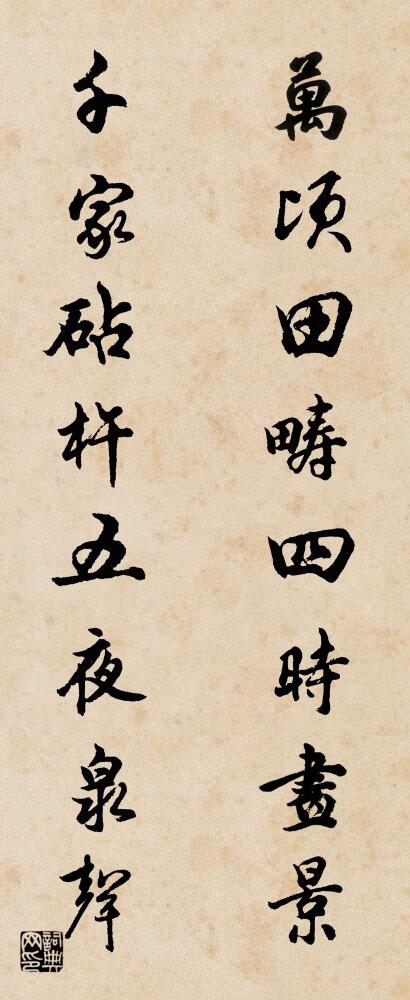 萬頃田疇四時畫景
千家砧杵五夜泉聲
詞典網印